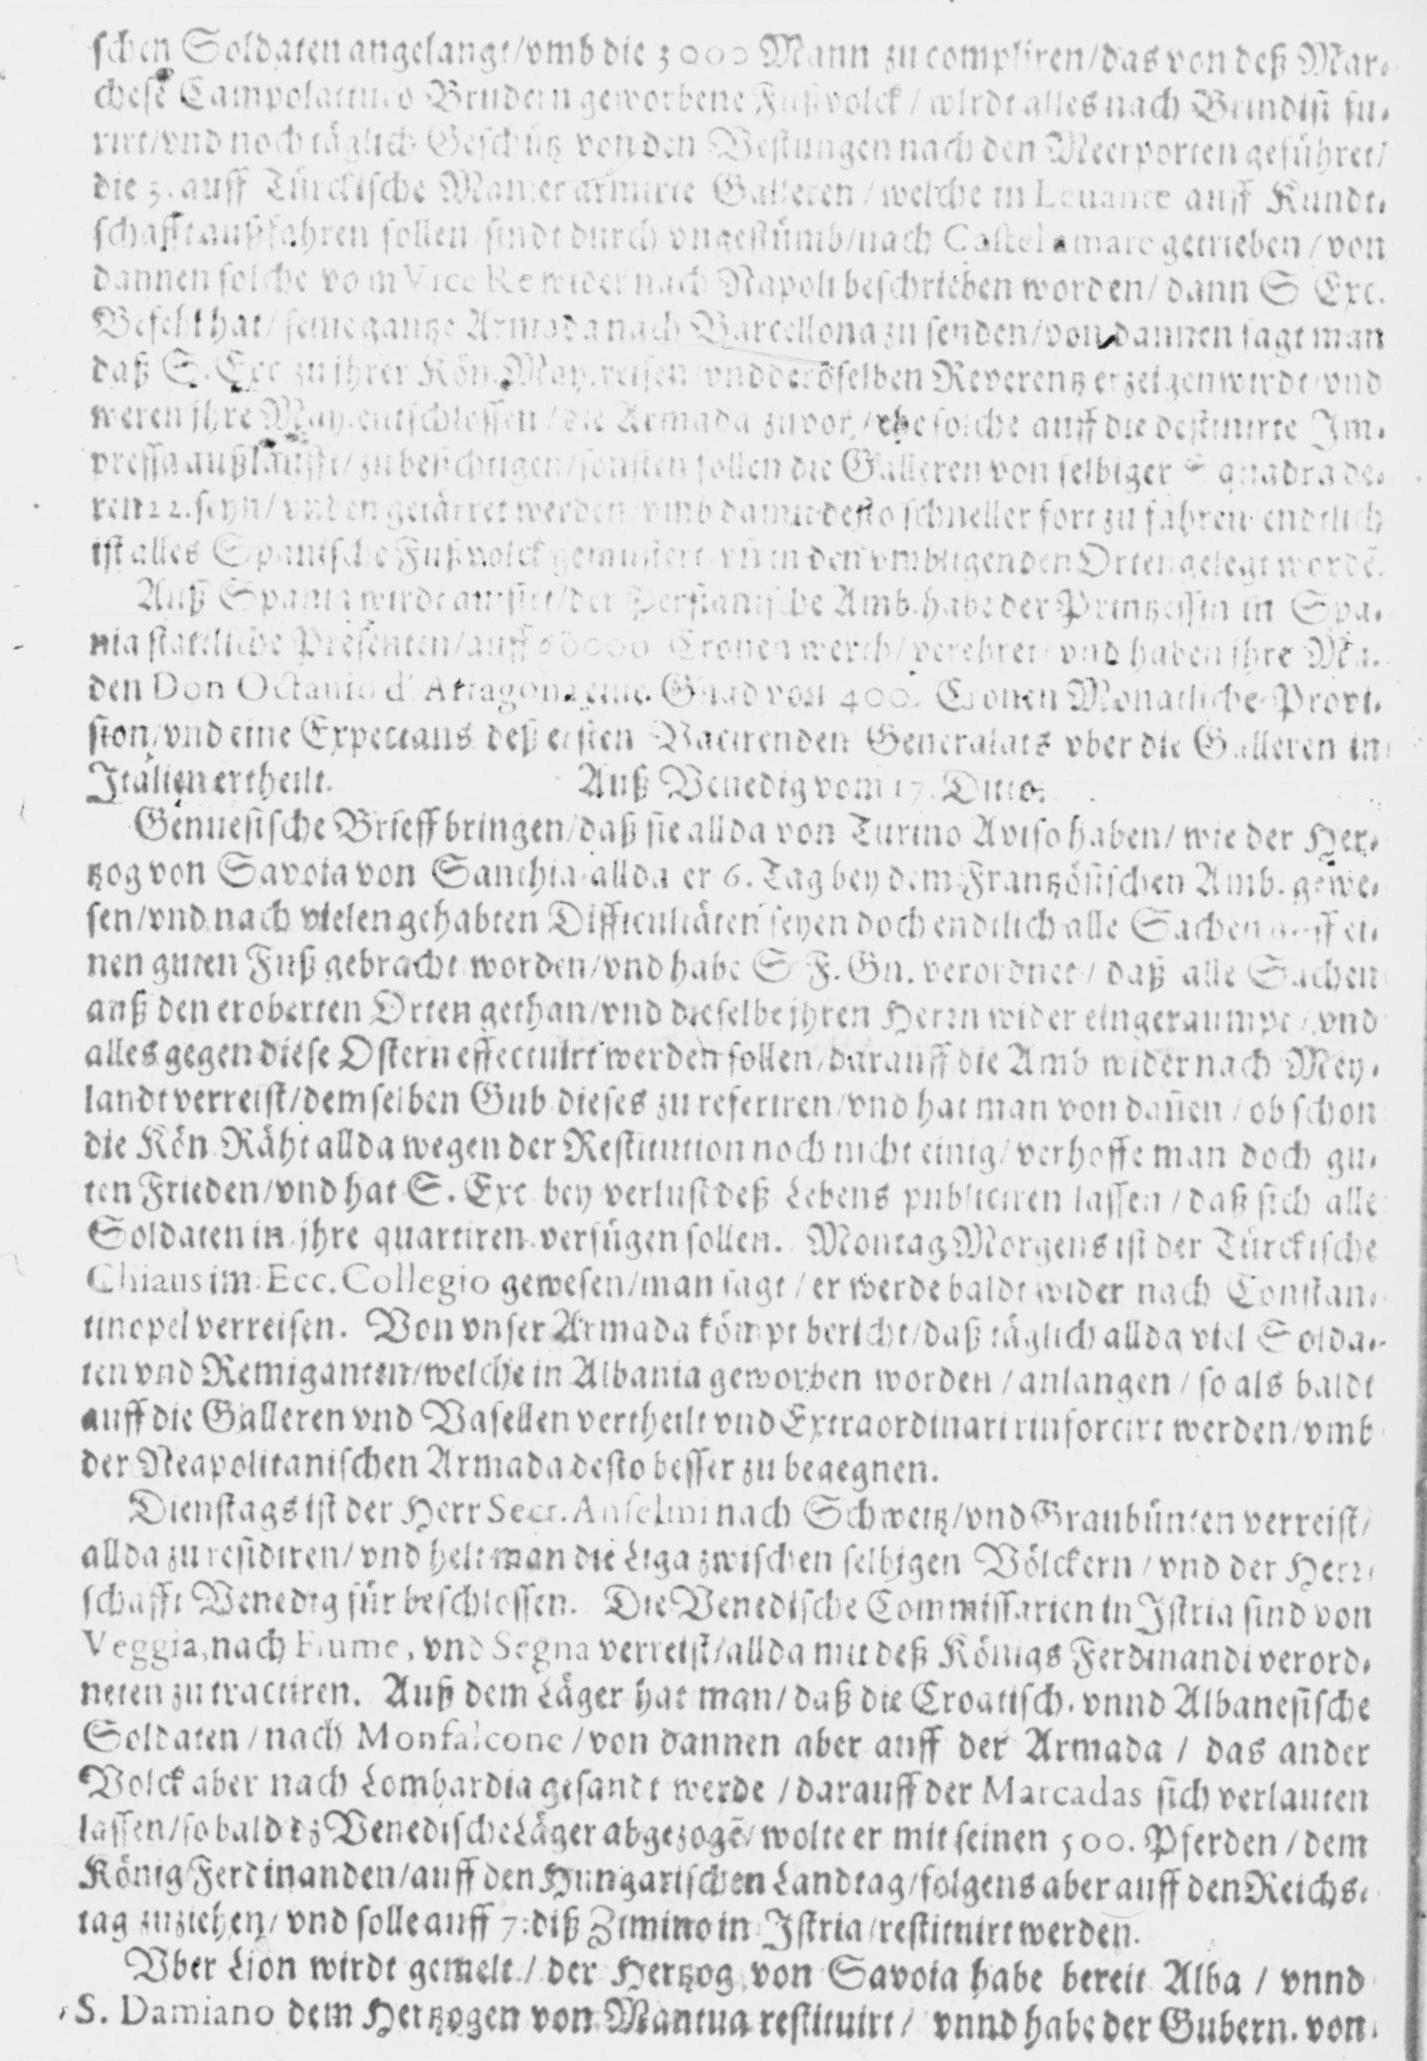 schen Soldaten angelangt/vmb die 3000 Mann zu compliren/das von deß Mar-
chese Campolattaro Brudern geworbene Fußvolck/wirdt alles nach Brindisi fu-
rirt/vnd noch täglich Geschütz von den Vestungen nach den Meerporten geführet/
die 3. auff Türckische Manier armirte Galleren/welche in Leuante auff Kundt-
schafft außfahren sollen/sindt durch vngestümb/nach Castel amare getrieben/von
dannen solche vom Vice Re wider nach Napoli beschrieben worden/dann S Exc.
Befehl hat/seine gantze Armada nach Barcellona zu senden/von dannen sagt man
daß S. Exc. zu ihrer Kön. May. reisen/vnd deröselben Reverentz erzeigen wirdt/vnd
weren jhre May. entschlossen/die Armada zuvor/ehe solche auff die destinirte Im-
pressa außläufft/zu besichtigen/sonsten sollen die Galleren von selbiger Squadra de-
ren 22. seyn/vnden getärret werden/vmb damit desto schneller fort zu fahren endtlich
ist alles Spanische Fußvolck gemustert vñ in den vmbligenden Orten gelegt wordē.
Auß Spania wirdt avisirt/der Persianische Amb. habe der Printzessin in Spa-
nia stattliche Presenten/auff 60000 Cronen werth/verehret/vnd haben jhre Ma.
den Don Octauio d' Arragona eine Gnad von 400. Cronen Monatliche Provi-
sion/vnd eine Expectans deß ersten Vacirenden Generalats vber die Galleren in
Italien ertheilt. Auß Venedig vom 17. Ditto.
Genuesische Brieff bringen/daß sie allda von Turino Aviso haben/wie der Her-
tzog von Savoia von Santhia allda er 6. Tag bey dem Frantzösischen Amb. gewe-
sen/vnd nach vielen gehabten Difficultäten seyen doch endtlich alle Sachen auff ei-
nen guten Fuß gebracht worden/vnd habe S F. Gn. verordnet/daß alle Sachen
auß den eroberten Orten gethan/vnd dieselbe jhren Herrn wider eingeraumpt/vnd
alles gegen diese Ostern effectuirt werden sollen/darauff die Amb wider nach Mey-
landt verreist/demselben Gub. dieses zu referiren/vnd hat man von dañen/ob schon
die Kön Räht allda wegen der Restitution noch nicht einig/verhoffe man doch gu-
ten Frieden/vnd hat S. Exc bey verlust deß Lebens publiciren lassen/daß sich alle
Soldaten in jhre quartiren verfügen sollen. Montag Morgens ist der Türckische
Chiaus im Ecc. Collegio gewesen/man sagt/er werde baldt wider nach Constan-
tinopel verreisen. Von vnser Armada kömpt bericht/daß täglich allda viel Solda-
ten vnd Remiganten/welche in Albania geworben worden/anlangen/so als baldt
auff die Galleren vnd Vasellen vertheilt vnd Extraordinari rinforcirt werden/vmb
der Neapolitanischen Armada desto besser zu begegnen.
Dienstags ist der Herr Secr. Anselmi nach Schweitz/vnd Graubünten verreist/
allda zu residiren/vnd helt man die Liga zwischen selbigen Völckern/vnd der Herr-
schafft Venedig für beschlossen. Die Venedische Commissarien in Istria sind von
Veggia, nach Fiume, vnd Segna verreist/allda mit deß Königs Ferdinandi verord-
neten zu tractiren. Auß dem Läger hat man/daß die Croatisch. vnnd Albanesische
Soldaten/nach Monfalcone/von dannen aber auff der Armada/das ander
Volck aber nach Lombardia gesandt werde/darauff der Marcadas sich verlauten
lassen/so bald dz Venedische Läger abgezogē/wolte er mit seinen 500. Pferden/dem
König Ferdinanden/auff den Hungarischen Landtag/folgens aber auff den Reichs-
tag zuziehen/vnd solle auff 7. diß Zimino in Istria/restituirt werden.
Vber Lion wirdt gemelt/der Hertzog von Savoia habe bereit Alba/vnnd
S. Damiano dem Hertzogen von Mantua restituirt/vnnd habe der Gubern. von